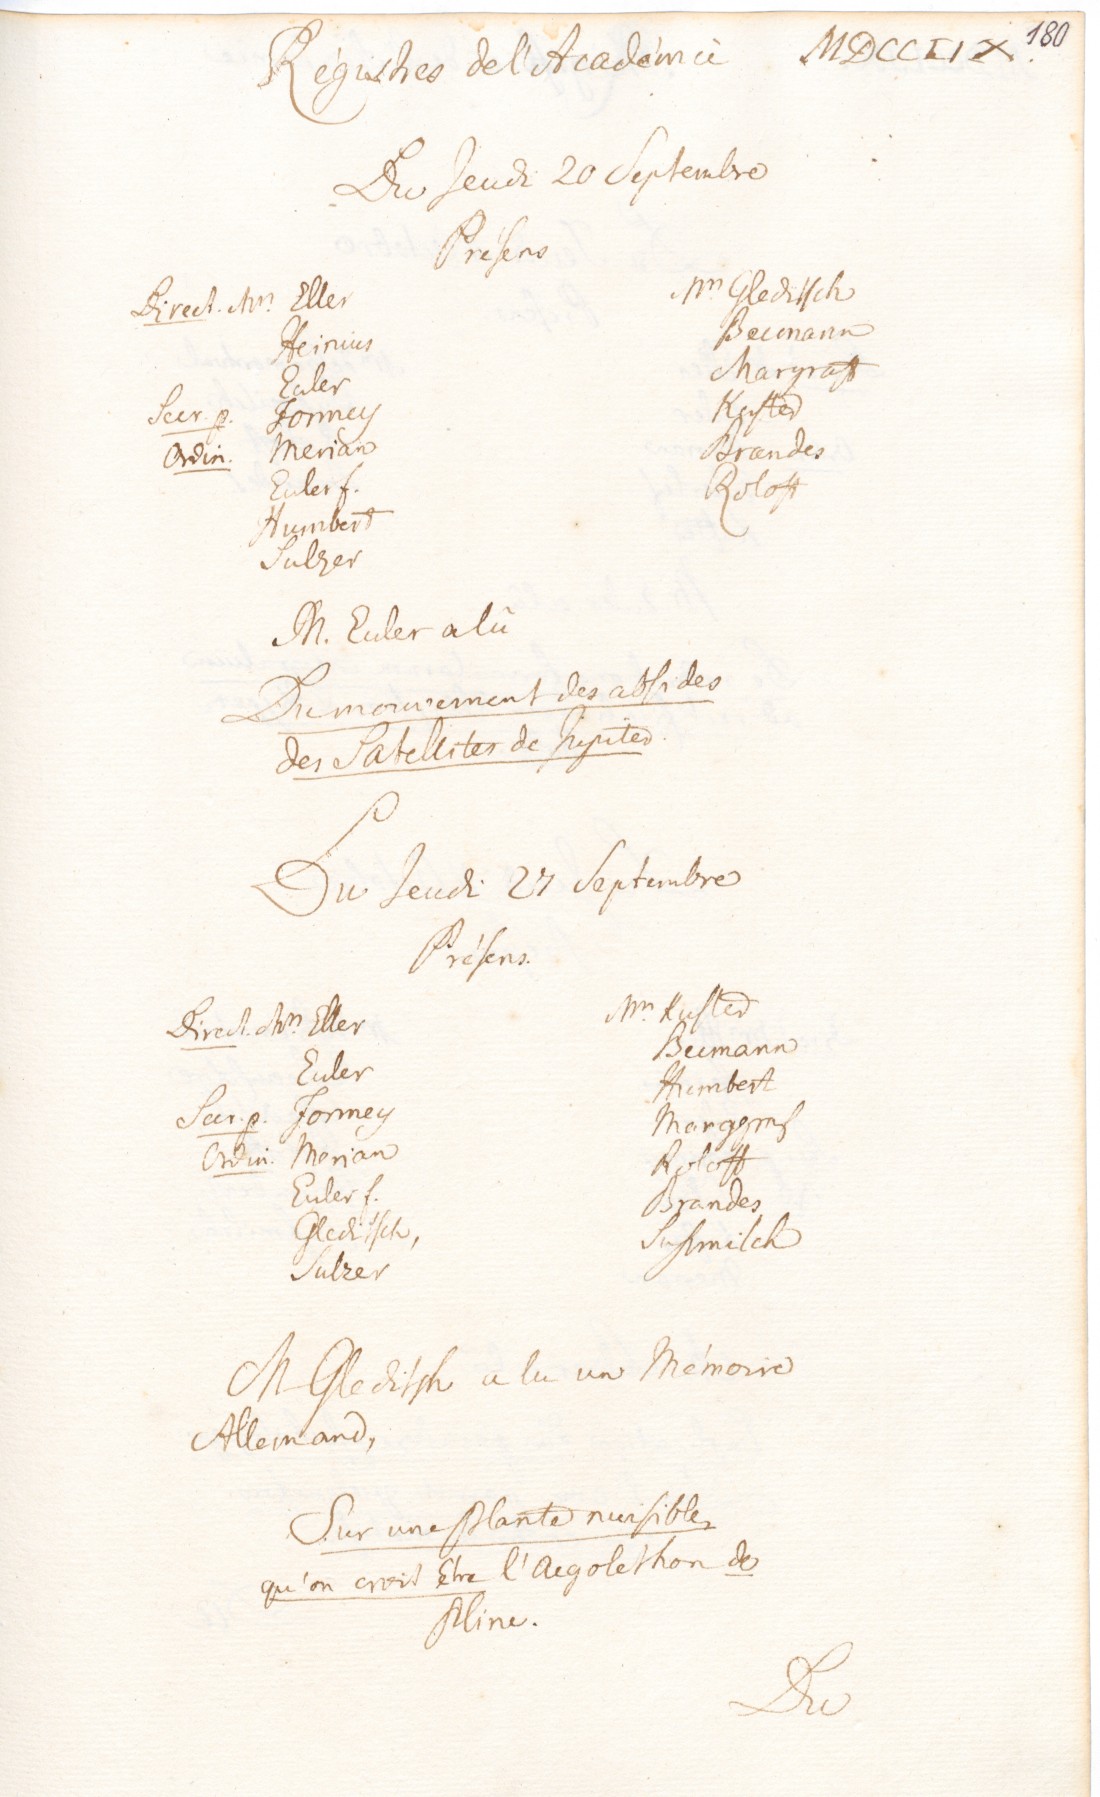 Régistres de l'Académie MDCCLIX. 180
Du Jeudi 20 Septembre
Présens
Direct. Mrs. Eller
Heinius
Euler
Secr. p. Formey
Ordin. Merian
Euler f.
Humbert
Sulzer
Mrs Gleditsch
Becmann
Margraff
Küster
Brandes
Roloff
M. Euler a lû
Du mouvement des absides
des Satellites de Jupiter.
Du Jeudi 27 Septembre
Présens.
Direct. Mrs. Eller
Euler
Secr. p. Formey
Ordin. Merian
Euler f.
Gleditsch,
Sulzer
Mrs Kuster
Becmann
Humbert
Marggraf
Roloff
Brandes
Susmilch
M Gleditsch a lu un Mémoire
Allemand,
Sur une plante nuisible,
qu'on croit être l'Aegolethon de
Pline.
Du